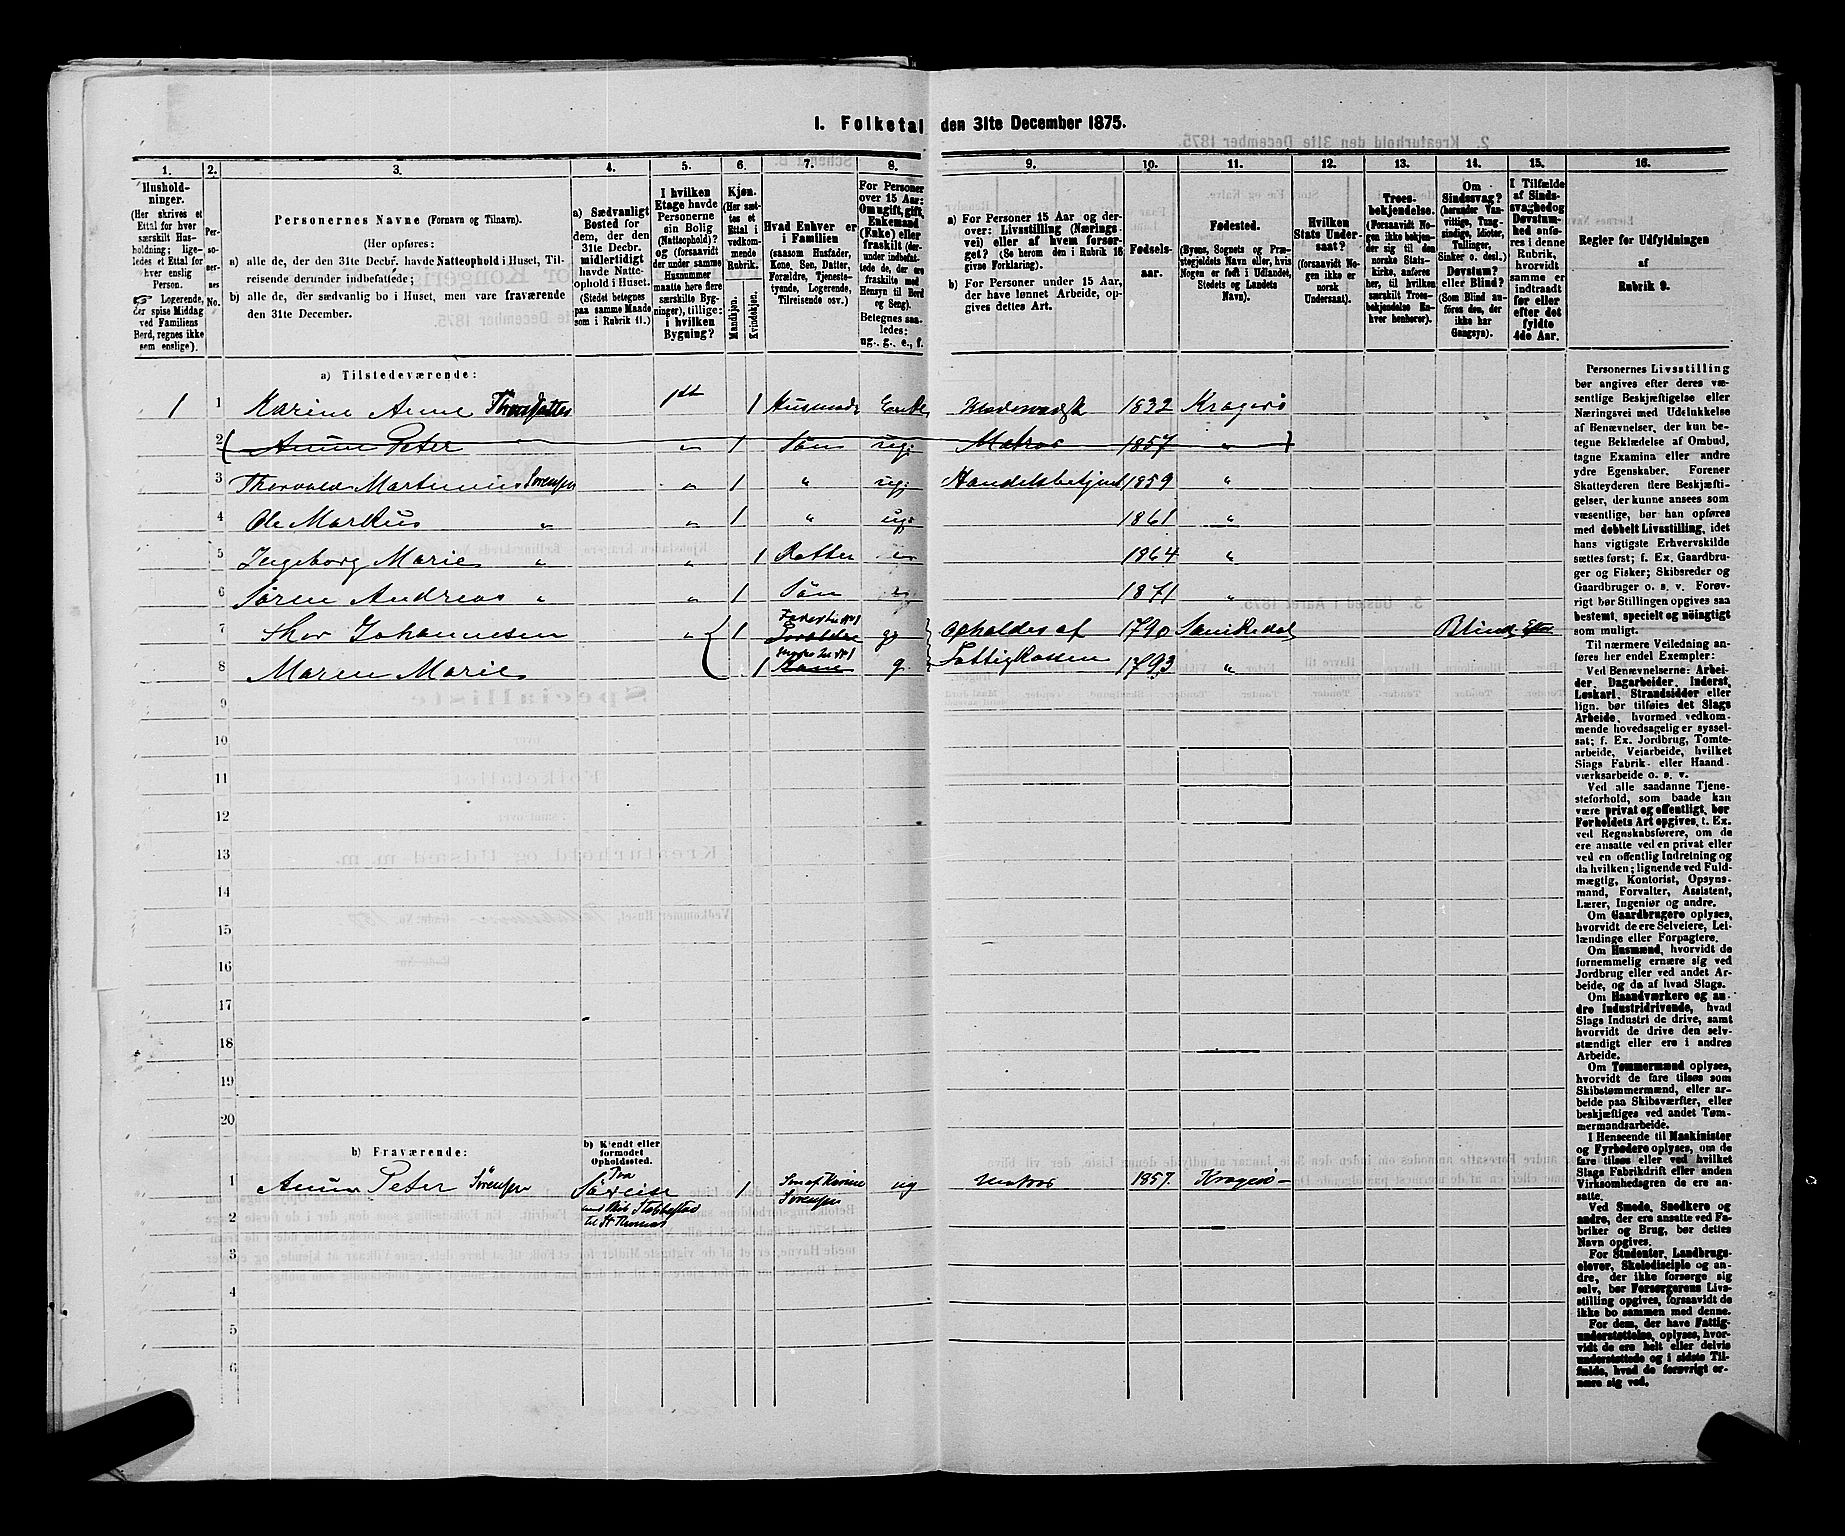 I. Folketal den 31te December 1875.
1. 2. 3. 4. 5. 6. 7. 8. 9. 10. 11. 12. 13. 14. 15. 16.
Hushold-
ninger.
(Her skrives et
Ettal for hver
særskilt Hus-
holdning; lige-
ledes et Ettal for
hver enslig
Person.
Logerende,
der spise Middag
ved Familiens
Berd, regnes ikke
som enslige).
Per-
so-
ner-
nes
No.
Personernes Navne (Fornavn og Tilnavn).
(Her opføres:
a) alle de, der den 31te Decbr. havde Natteophold i Huset, Til-
reisende derunder indbefattede;
b) alle de, der sædvanlig bo i Huset, men vare fraværende
den 31te December.
a) Sædvanligt
Bosted for
dem, der den
31te Decbr.
midlertidigt
havde Natte-
ophold i Huset.
(Stedet betegnes
paa samme Maade
som i Rubrik 11.)
I hvilken
Etage havde
Personerne
sin Bolig
(Natteophold)?
(forsaavidt
der under samme
Husnummer
maatte høre flere
særskilte Byg-
ninger), tillige:
i hvilken
Bygning?
Kjøn.
(Her sæt-
tes et
Ettal i
vedkom-
mende
Rubrik.
Mandkjøn.
Kvindekjøn.
Hvad Enhver er
i Familien
(saasom Husfader,
Kone, Søn, Datter,
Forældre, Tjeneste-
tyende, Logerende,
Tilreisende osv.)
For Personer
over 15 Aar:
Om ugift, gift,
Enkemand
(Enke) eller
fraskilt (der-
under indbefat-
tede de, der ere
fraskilte med
Hensyn til Bord
og Seng).
Betegnes saa-
ledes:
ug., g., e., f.
a) For Personer 15 Aar og der-
over: Livsstilling (Nærings-
vei) eller af hvem forsør-
get? (Se herom den i Rubrik 16
givne Forklaring).
b) For Personer under 15 Aar,
der have lønnet Arbeide, op-
gives dettes Art.
Fødsels-
aar.
Fødested.
(Byens, Sognets og Præ-
stegjeldets Navn eller, hvis
Nogen er født i Udlandet,
Stedets og Landets
Navn).
Hvilken
Stats Under-
saat?
(forsaavidt No-
gen ikke er
norsk
Undersaat).
Troes-
bekjendelse.
(Forsaavidt No-
gen ikke bekjen-
der sig til den
norske Stats-
kirke, anføres
her, til hvilken
særskilt Troes-
bekjendelse En-
hver henhører).
Om
Sindssvag?
(herunder Van-
vittige, Tung-
sindige, Idioter,
Tullinger,
Sinker o. desl.)
Døvstum?
eller Blind?
(Som Blind an-
føres den, der
ikke har
Gangsyn).
I Tilfælde
af Sinds-
svaghed og
Døvstum-
hed anfø-
res i denne
Rubrik,
hvorvidt
samme er
indtraadt
før eller
efter det
fyldte
4de Aar.
Regler for Udfyldningen
af
Rubrik 9.
a) Tilstedeværende:
1 1 Karine Anne 1ste 1 Husmoder Enke 1832 Kragerø
2 Peter " 1 Søn ug. Matros 1857 "
3 Thorvald Martinius Sørensen " 1 " ug. Handelsbetjent 1859 "
4 Ole Markus " " 1 " ug. 1861 "
5 Ingeborg Marie " " 1 Datter 1864 "
6 Søren Andreas " " 1 Søn 1871 "
7 Thor Johannesen " 1 g. Opholdes af 1790 Sannikedal Blind Efter
8 Maren Marie 1 g. Fattigkassen 1793 "
9
10
11
12
13
14
15
16
17
18
19
20
b) Fraværende:
b) Kjendt eller
formodet
Opholdssted.
1 Peter Sørensen Paa 1 Søn af Karine ug Matros 1857 Kragerø
Søreise Sørensen
2 til St Thomas
3
4
5
6
Personernes Livsstilling
bør angives efter deres væ-
sentlige Beskjæftigelse eller
Næringsvei med Udelukkelse
af Benævnelser, der kun be-
tegne Beklædelse af Ombud,
tagne Examina eller andre
ydre Egenskaber. Forener
Skatteyderen flere Beskjæfti-
gelser, der kunne ansees som
væsentlige, bør han opføres
med dobbelt Livsstilling, idet
hans vigtigste Erhvervskilde
sættes først; f. Ex. Gaardbru-
ger og Fisker; Skibsreder og
Gaardbruger o. s. v. Forøv-
rigt bør Stillingen opgives saa
bestemt, specielt og nøiagtigt
som muligt.
Til nærmere Veiledning an-
føres her endel Exempler:
Ved Benævnelserne: Arbei-
der, Dagarbeider, Inderst,
Løskarl, Strandsidder eller
lign. bør tilføies det Slags
Arbeide, hvormed vedkom-
mende hovedsagelig er syssel-
sat; f. Ex. Jordbrug, Tomte-
arbeide, Veiarbeide, hvilket
Slags Fabrik- eller Haand-
værksarbeide o. s. v.
Ved alle saadanne Tjene-
steforhold, som baade kan
være privat og offentligt, bør
Forholdets Art opgives, t. Ex.
ved Regnskabsførere, om de
ere ansatte ved en privat eller
ved en offentlig Indretning og
da hvilken; lignende ved Fuld-
mægtig, Kontorist, Opsyns-
mand, Forvalter, Assistent,
Lærer, Ingeniør og andre.
Om Gaardbrugere oplyses,
hvorvidt de ere Selveiere, Lei-
lændinge eller Forpagtere.
Om Husmænd, hvorvidt de
fornemmelig ernære sig ved
Jordbrug eller ved andet Ar-
beide, og da af hvad Slags.
Om Haandværkere og an-
dre Industridrivende, hvad
Slags Industri de drive, samt
hvorvidt de drive den selv-
stændigt eller ere i andres
Arbeide.
Om Tømmermænd oplyses,
hvorvidt de fare tilsøs som
Skibstømmermænd, eller ar-
beide paa Skibsværfter, eller
beskjæftiges ved andet Tøm-
mermandsarbeide.
I Henseende til Maskinister
og Fyrbødere oplyses, om de
fare tilsøs eller ved hvilket
Slags Fabrikdrift eller anden
Virksomhedsgren de ere an-
satte.
Ved Smede, Snedkere og
andre, der ere ansatte ved Fa-
briker og Brug, bør dettes
Navn opgives.
For Studenter, Landbrugs-
elever, Skoledisciple og an-
dre, der ikke forsørge sig
selv, bør Forsørgerens Livs-
stilling opgives, forsaavidt de
ikke bo sammen med denne.
For dem, der have Fattig-
understøttelse, oplyses, hvor-
vidt de ere helt eller delvis
understøttede og i sidste Til-
fælde, hvad de forøvrigt er-
nære sig ved.